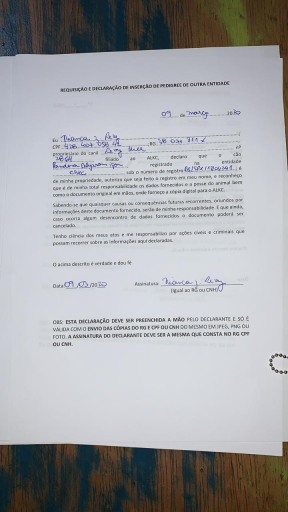 REQUISIÇÃO E DECLARAÇÃO DE INSERÇÃO DE PEDIGREE DE OUTRA ENTIDADE
09 de março 2020
Eu
CPF RG
proprietário do canil
filiado ao ALKC, declaro que o cão
registrado na entidade
sob o número de registro
de minha propriedade, autorizo que seja feito o registro em meu nome, e reconheço
que é de minha total responsabilidade os dados fornecidos e a posse do animal bem
como o documento original em mãos, onde forneço a cópia digital para o ALKC.
Sabendo-se que quaisquer causas ou consequências futuras recorrentes, oriundos por
informações deste documento fornecido, serão de minha responsabilidade. E que ainda,
caso ocorra algum desencontro de dados fornecidos o documento poderá ser
cancelado.
Tenho ciência dos meus atos e me responsabilizo por ações cíveis e criminais que
possam recorrer sobre as informações aqui declaradas.
O acima descrito é verdade e dou fé
Data 09/03/2020 Assinatura
(Igual ao RG ou CNH)
OBS: ESTA DECLARAÇÃO DEVE SER PREENCHIDA A MÃO PELO DECLARANTE E SÓ É
VÁLIDA COM O ENVIO DAS CÓPIAS DO RG E CPF OU CNH DO MESMO EM JPEG, PNG OU
FOTO, A ASSINATURA DO DECLARANTE DEVE SER A MESMA QUE CONSTA NO RG CPF
OU CNH.